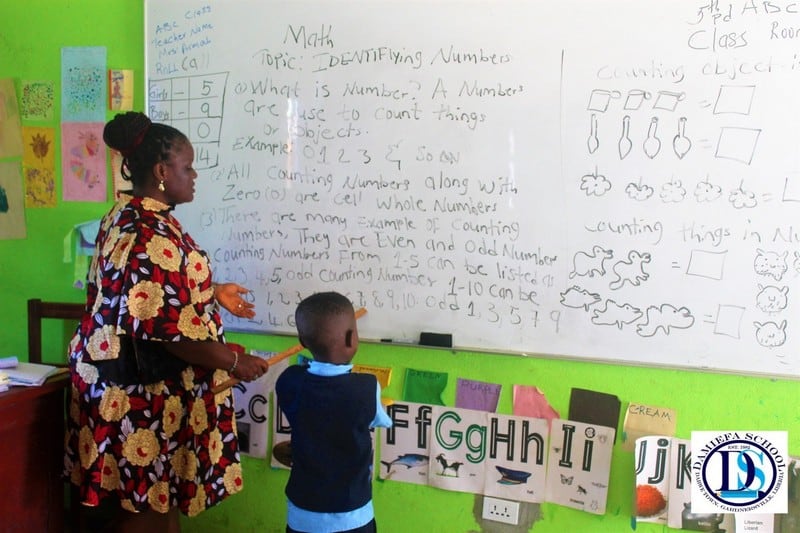 ABC Class
Teacher Name
Roll Call
Girls - 5
Boys - 9
0
14
Math
Topic: IDENTIFYING Numbers
(1) What is Number? A Numbers
are use to count things
or objects.
Example: 0 1 2 3 & So on
(2) All Counting Numbers along with
Zero (0) are Cell Whole Numbers
(3) There are many Example of Counting
Numbers, They are Even and Odd Number
Counting Numbers From 1-5 can be listed as
1, 2, 3, 4, 5, odd Counting Number 1-10 can be
8, 9, 10. odd 1, 3, 5 7 9
5th Pd ABC
Class Room
Counting object is
=
=
=
Counting things in Nu
=
=
GREEN
PURPLE
CREAM
Cc
D
Ff
Gg
Hh
Ii
Jj
K
Liberian Lizard
DAMIEFA SCHOOL
EST. 1982
DS
GARDNERSVILLE, LIBERIA